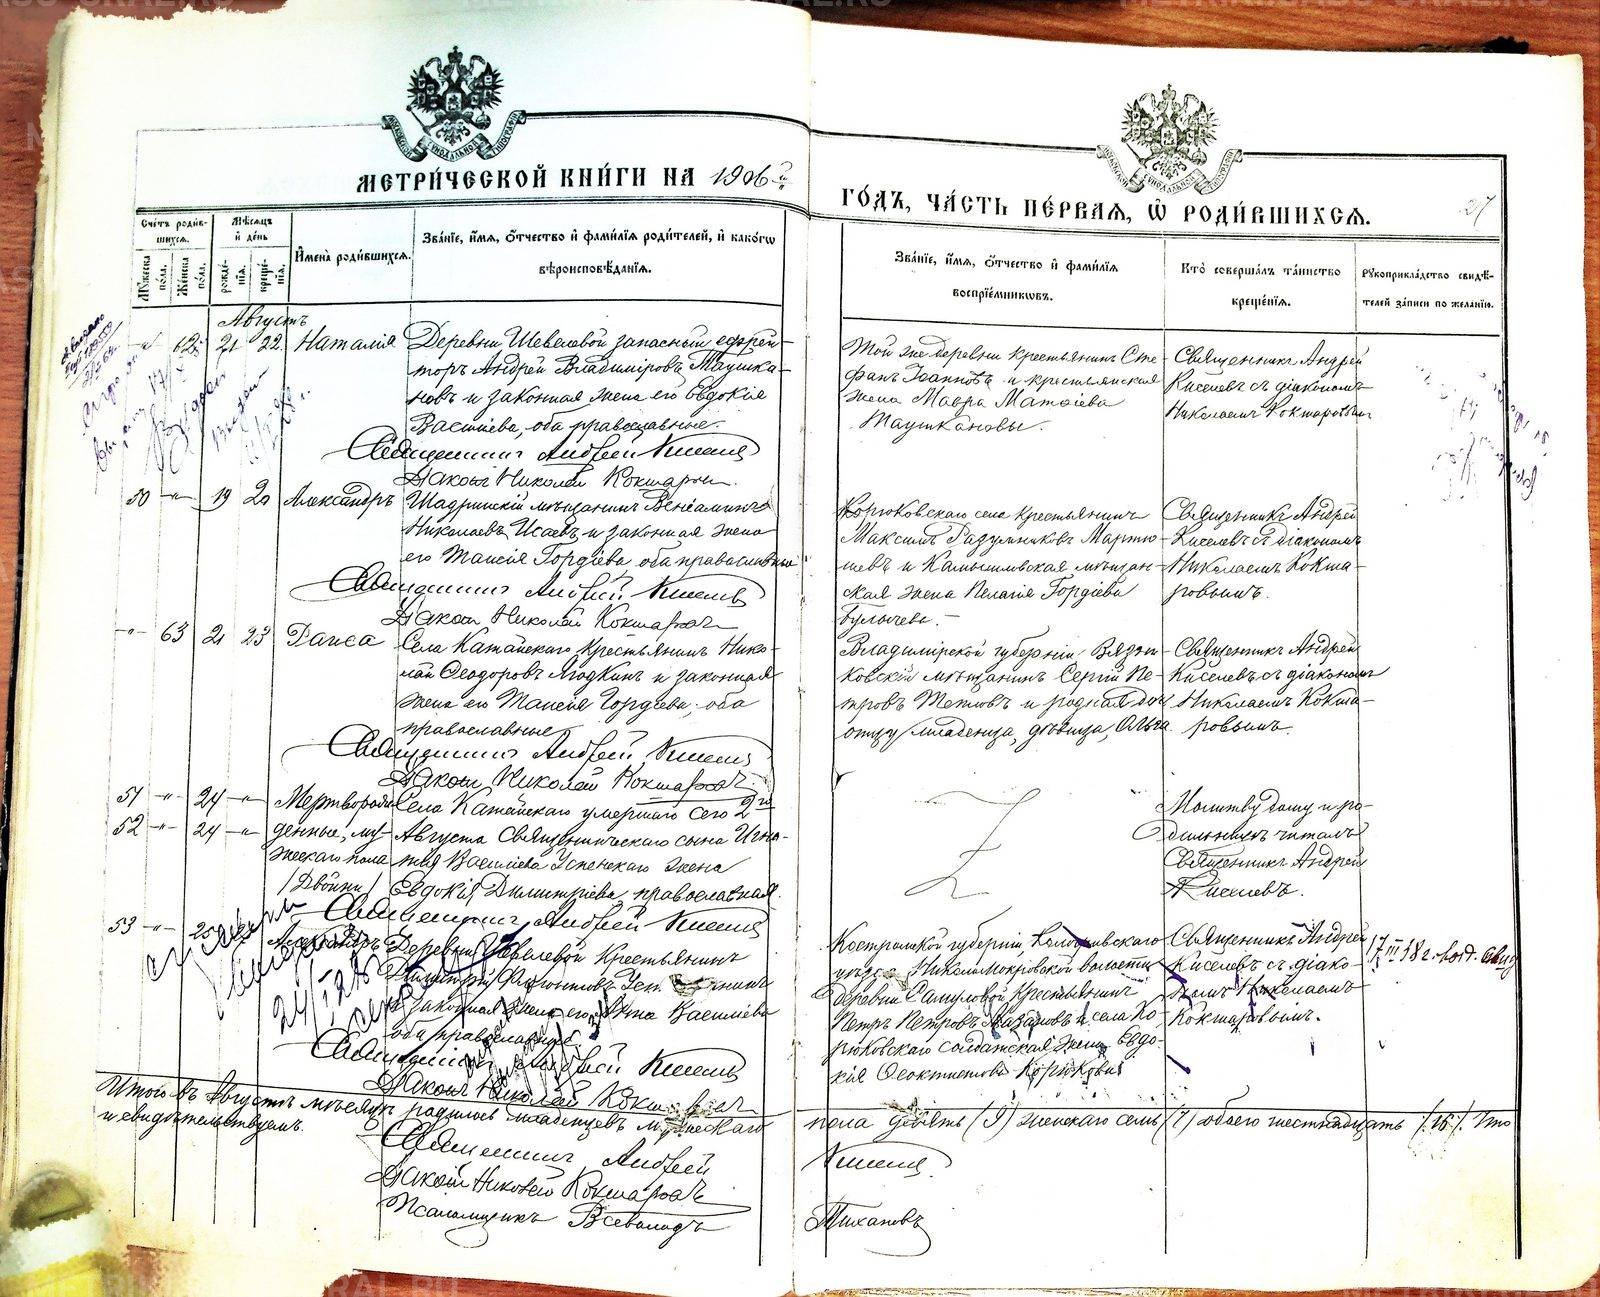 МЕТРИ́ЧЕСКОЙ КНИ́ГИ НА 1906 й
ГО́ДЪ, ЧА́СТЬ ПЕ́РВАЯ, Ѡ РОДИ́ВШИХСЯ.
27
Сче́тъ роди́в-
шихся.
Му́жеска по́ла.
Же́нска по́ла.
Мѣ́сяцъ и҆ де́нь
рожде́-
нїя.
креще́-
нїя.
И҆мена̀ роди́вшихся.
Зва́нїе, и҆́мя, ѻ҆́тчество и҆ фами́лїя роди́телей, и҆ како́гѡ
вѣроисповѣ́данїя.
Зва́нїе, и҆́мя, ѻ҆́тчество и҆ фами́лїя
воспрїе́мникѡвъ.
Кто̀ соверша́лъ та́инство
креще́нїя.
Рꙋкоприкла́дство свидѣ́-
телей за́писи по жела́нїю.
Августъ
62 21 22 Наталія
Деревни Шевелевой запасный ефрей-
торъ Андрей Владиміровъ Таушка-
новъ и законная жена его Евдокія
Васильева, оба православные.
Священникъ Андрей Киселевъ
Діаконъ Николай Кокшаровъ
Той же деревни крестьянинъ Сте-
фанъ Іоанновъ и крестьянская
жена Мавра Матѳіева
Таушкановы.
Священникъ Андрей
Киселевъ съ діакономъ
Николаемъ Кокшаровымъ
50 -"- 19 20 Александръ
Шадринскій мѣщанинъ Веніаминъ
Николаевъ Исаевъ и законная жена
его Таисія Гордіева, оба православные
Священникъ Андрей Киселевъ
Діаконъ Николай Кокшаровъ
Корюковскаго села крестьянинъ
Максимъ Мартю-
шевъ и Камышловская мѣщан-
ская жена Пелагія Гордіева
Булычева.
Священникъ Андрей
Киселевъ съ діакономъ
Николаемъ Кокша-
ровымъ.
-"- 63 21 23 Раиса
Села Катайскаго крестьянинъ Нико-
лай Ѳеодоровъ Ягодкинъ и законная
жена его Таисія Гордіева, оба
православные
Священникъ Андрей Киселевъ
Діаконъ Николай Кокшаровъ
Владимірской губерніи Вязни-
ковскій мѣщанинъ Сергій Пе-
тровъ Тетловъ и родная дочь
отцу младенца, дѣвица, Ольга
Священникъ Андрей
Киселевъ съ діакономъ
Николаемъ Кокша-
ровымъ.
51 -"- 24 -"- Мертворож-
52 -"- 24 -"- денные, му-
жескаго пола
/Двойни/
Села Катайскаго умершаго сего 2го
Августа Священническаго сына Игна-
тія Васильева Успенскаго жена
Евдокія Димитріева, православная.
Священникъ Андрей Киселевъ
Молитву дому и ро-
дильницѣ читалъ
Священникъ Андрей
Киселевъ.
53 -"- 25 Александръ
Деревни Шевелевой крестьянинъ
Димитрій
и законная жена его Анна Васильева
оба православные.
Священникъ Андрей Киселевъ
Діаконъ Николай Кокшаровъ
Костромской губерніи, Кологривскаго
уѣзда Николомокровской волости
деревни Самуловой крестьянинъ
Петръ Петровъ и села Ко-
рюковскаго солдатская жена Евдо-
кія Ѳеоктистова Корюкова
Священникъ Андрей
Киселевъ съ діако-
номъ Николаемъ
Кокшаровымъ.
17 III 38 г.
Итого въ Августѣ мѣсяцѣ родилось младенцевъ мужескаго
пола девять (9) женскаго семь (7) обоего шестнадцать (16). Что
и свидѣтельствуемъ.
Священникъ Андрей Киселевъ
Діаконъ Николай Кокшаровъ
Псаломщикъ Всеволодъ Тихановъ